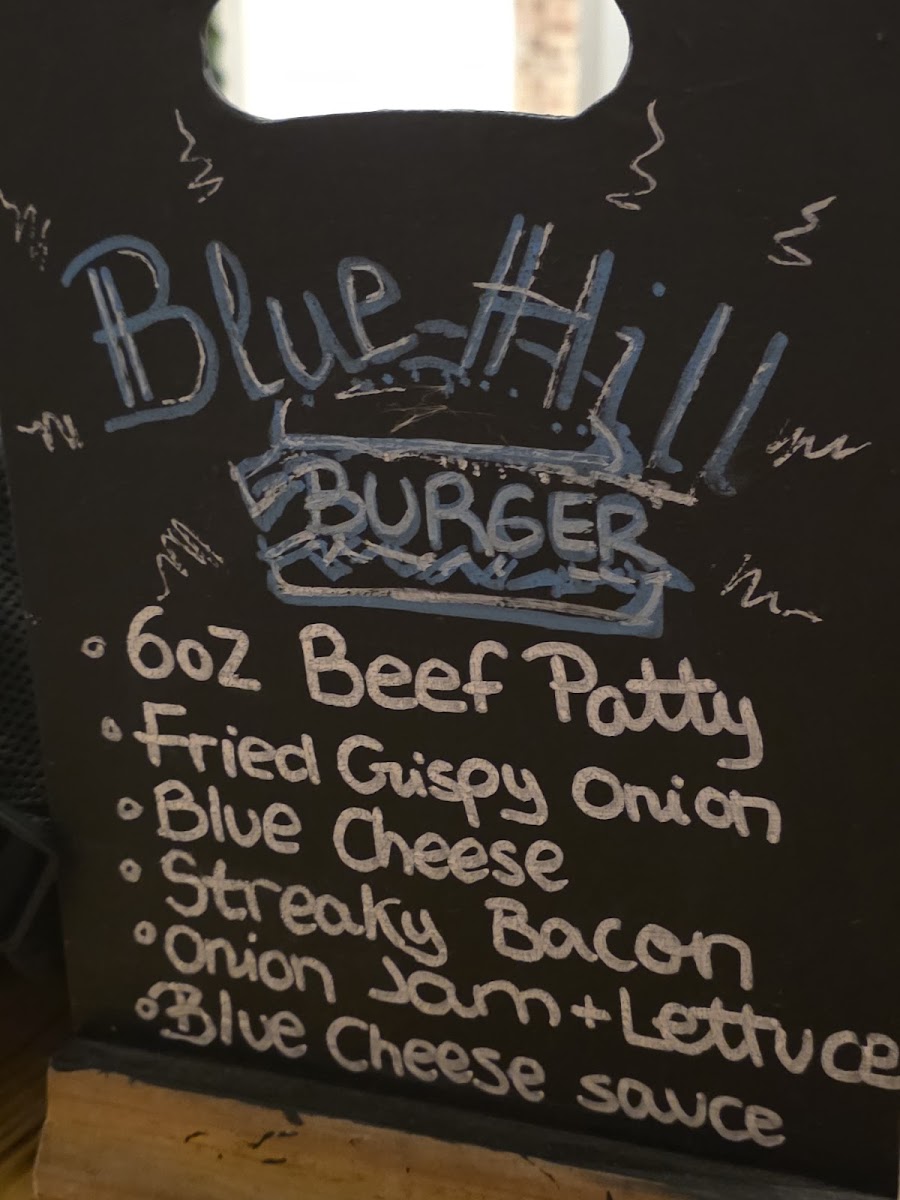 Blue Hill
BURGER
6oz Beef Patty
Fried Crispy Onion
Blue Cheese
Streaky Bacon
Onion Jam + Lettuce
Blue Cheese sauce